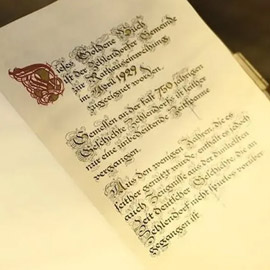 Dieses Goldene Buch
ist der Zehlendorfer Gemeinde
zur Rathauseinweihung
im April 1929
zugeeignet worden.
Gemessen an der fast 750 jährigen
Geschichte Zehlendorfs ist seither
nur eine unbedeutende Zeitspanne
vergangen.
Aus den wenigen Zeilen, die es
seither genutzt wurde, enthält es jedoch
auch Zeugnisse aus der dunkelsten
Zeit deutscher Geschichte, die an
Zehlendorf nicht spurlos vorüber
gegangen ist